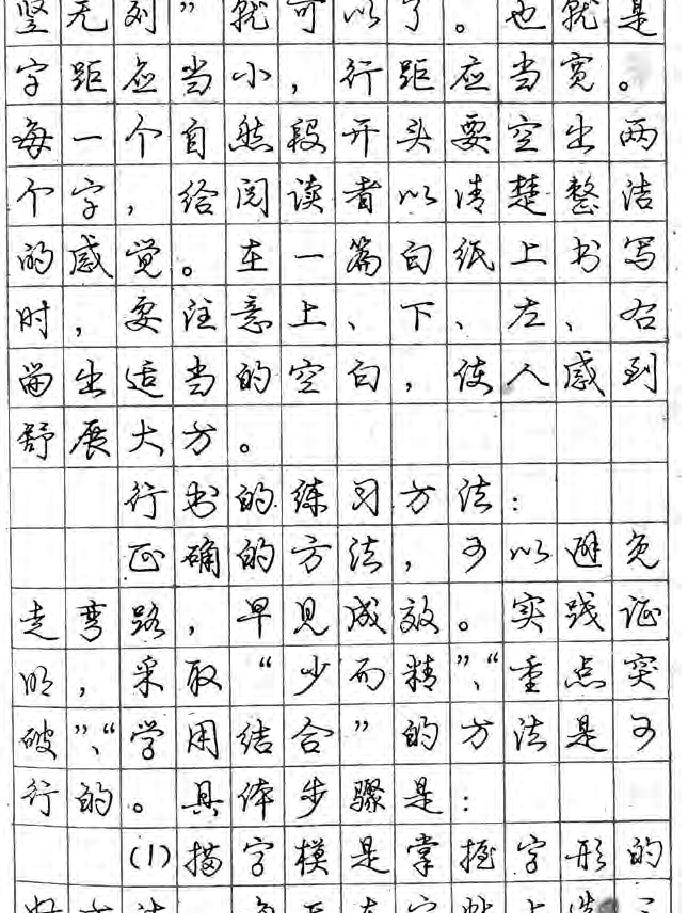 竖无列”就可以了。也就是
字距应当小，行距应当宽。
每一个自然段开头要空出两
个字，给阅读者以清楚整洁
的感觉。在一篇白纸上书写
时，要注意上、下、左、右
留出适当的空白，使人感到
舒展大方。
行书的练习方法：
正确的方法，可以避免
走弯路，早见成效。实践证
明，采取“少而精”、“重点突
破”、“学用结合”的方法是可
行的。具体步骤是：
(1)描字模是掌握字形的
好方法